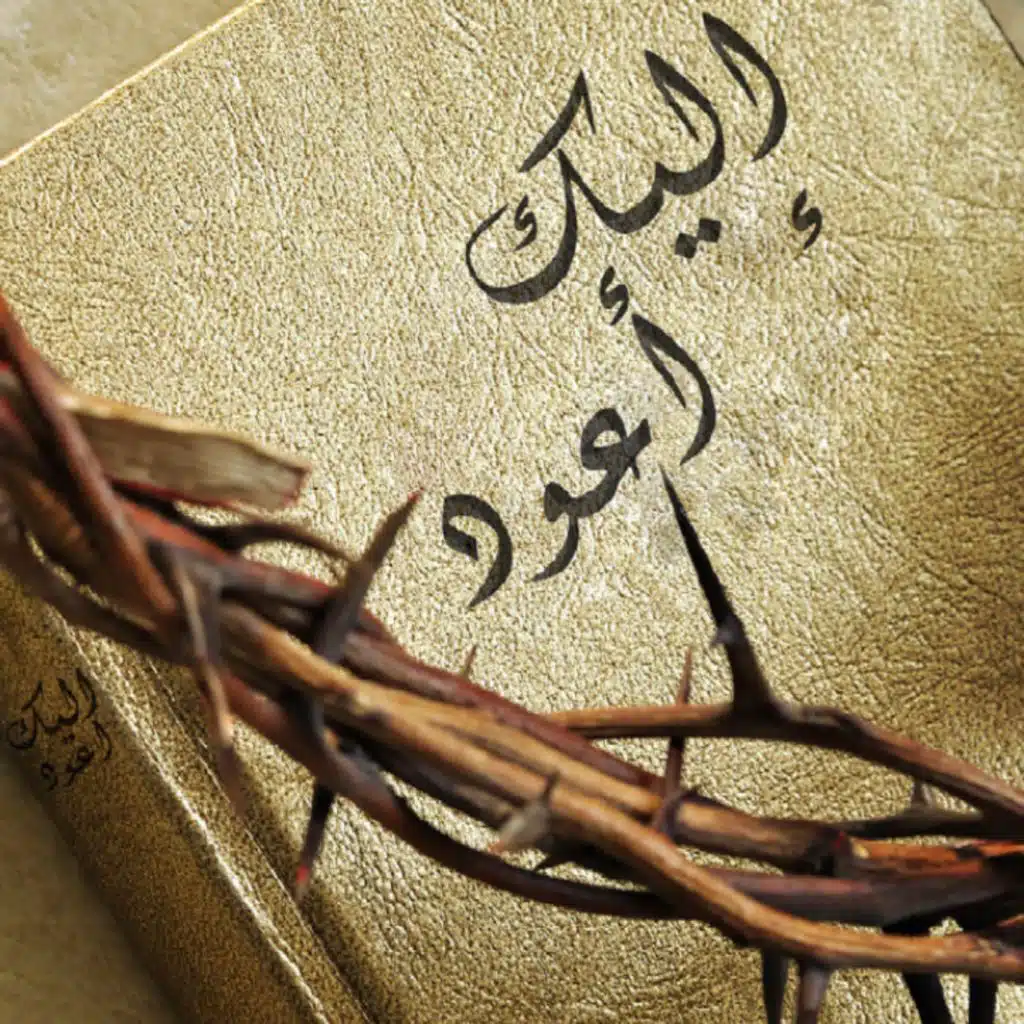 إليك
أعود
اليك
اعود